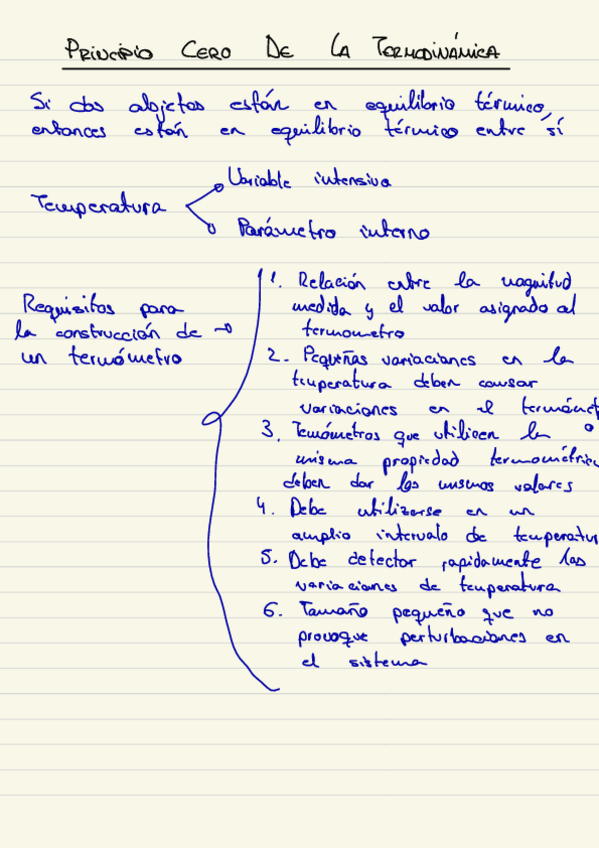 PRINCIPIO CERO DE LA TERMODINÁMICA
Si dos objetos están en equilibrio térmico,
entonces están en equilibrio térmico entre sí
Temperatura
Variable intensiva
Parámetro interno
Requisitos para
la construcción de
un termómetro
1. Relación entre la magnitud
medida y el valor asignado al
termometro
2. Pequeñas variaciones en la
temperatura deben causar
variaciones en el termómet
o
3. Temómetros que utilicen la
misma propiedad termométric
deben dar los mismos valores
4. Debe utilizarse en un
amplio intervalo de temperatur
5. Debe detectar rapidamente las
variaciones de temperatura
6. Tamaño pequeño que no
provoque perturbaciones en
el sistema